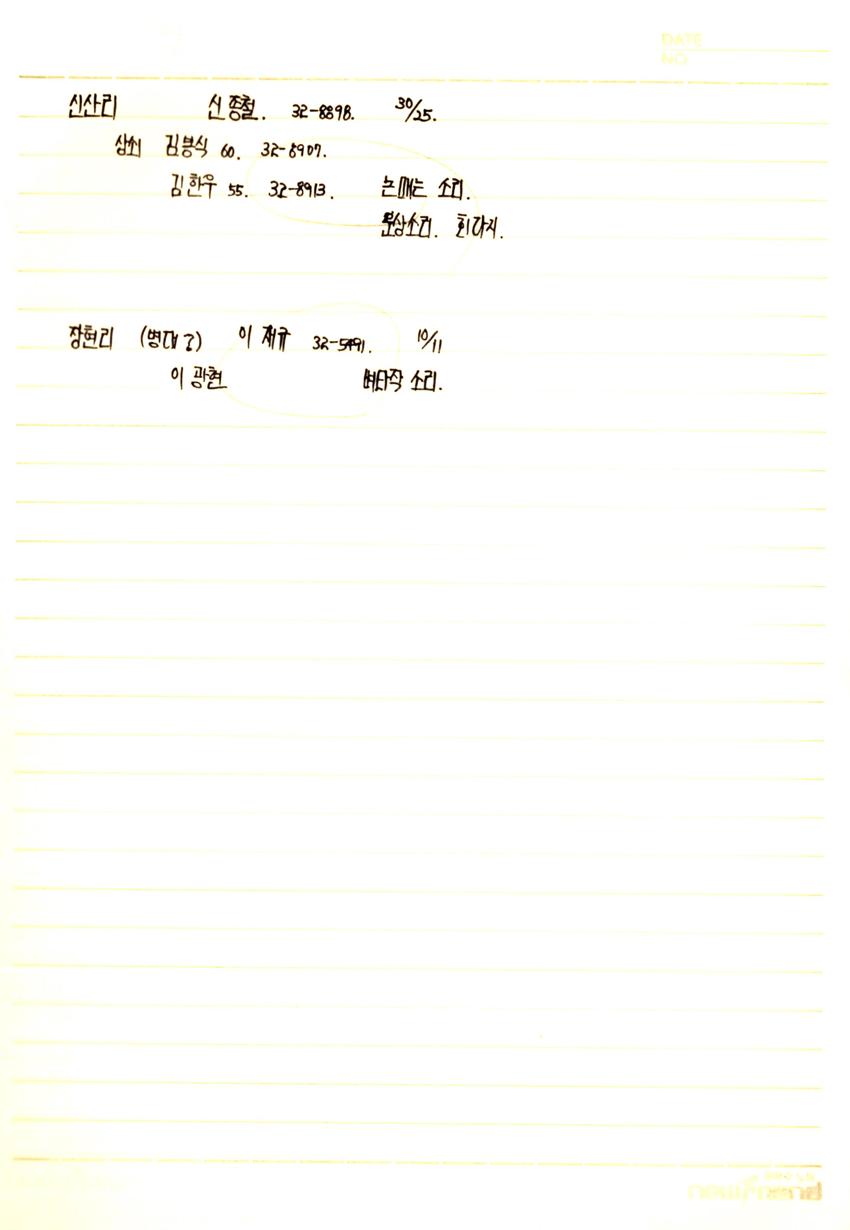 DATE
NO
신산리 신종철. 32-8898. 30/25.
상쇠 김봉식 60. 32-8907.
김한우 55. 32-8913. 논매는 소리.
운상소리. 회다지.
장현리 (병대?) 이재규 32-5491. 10/11
이광현 벼타작 소리.